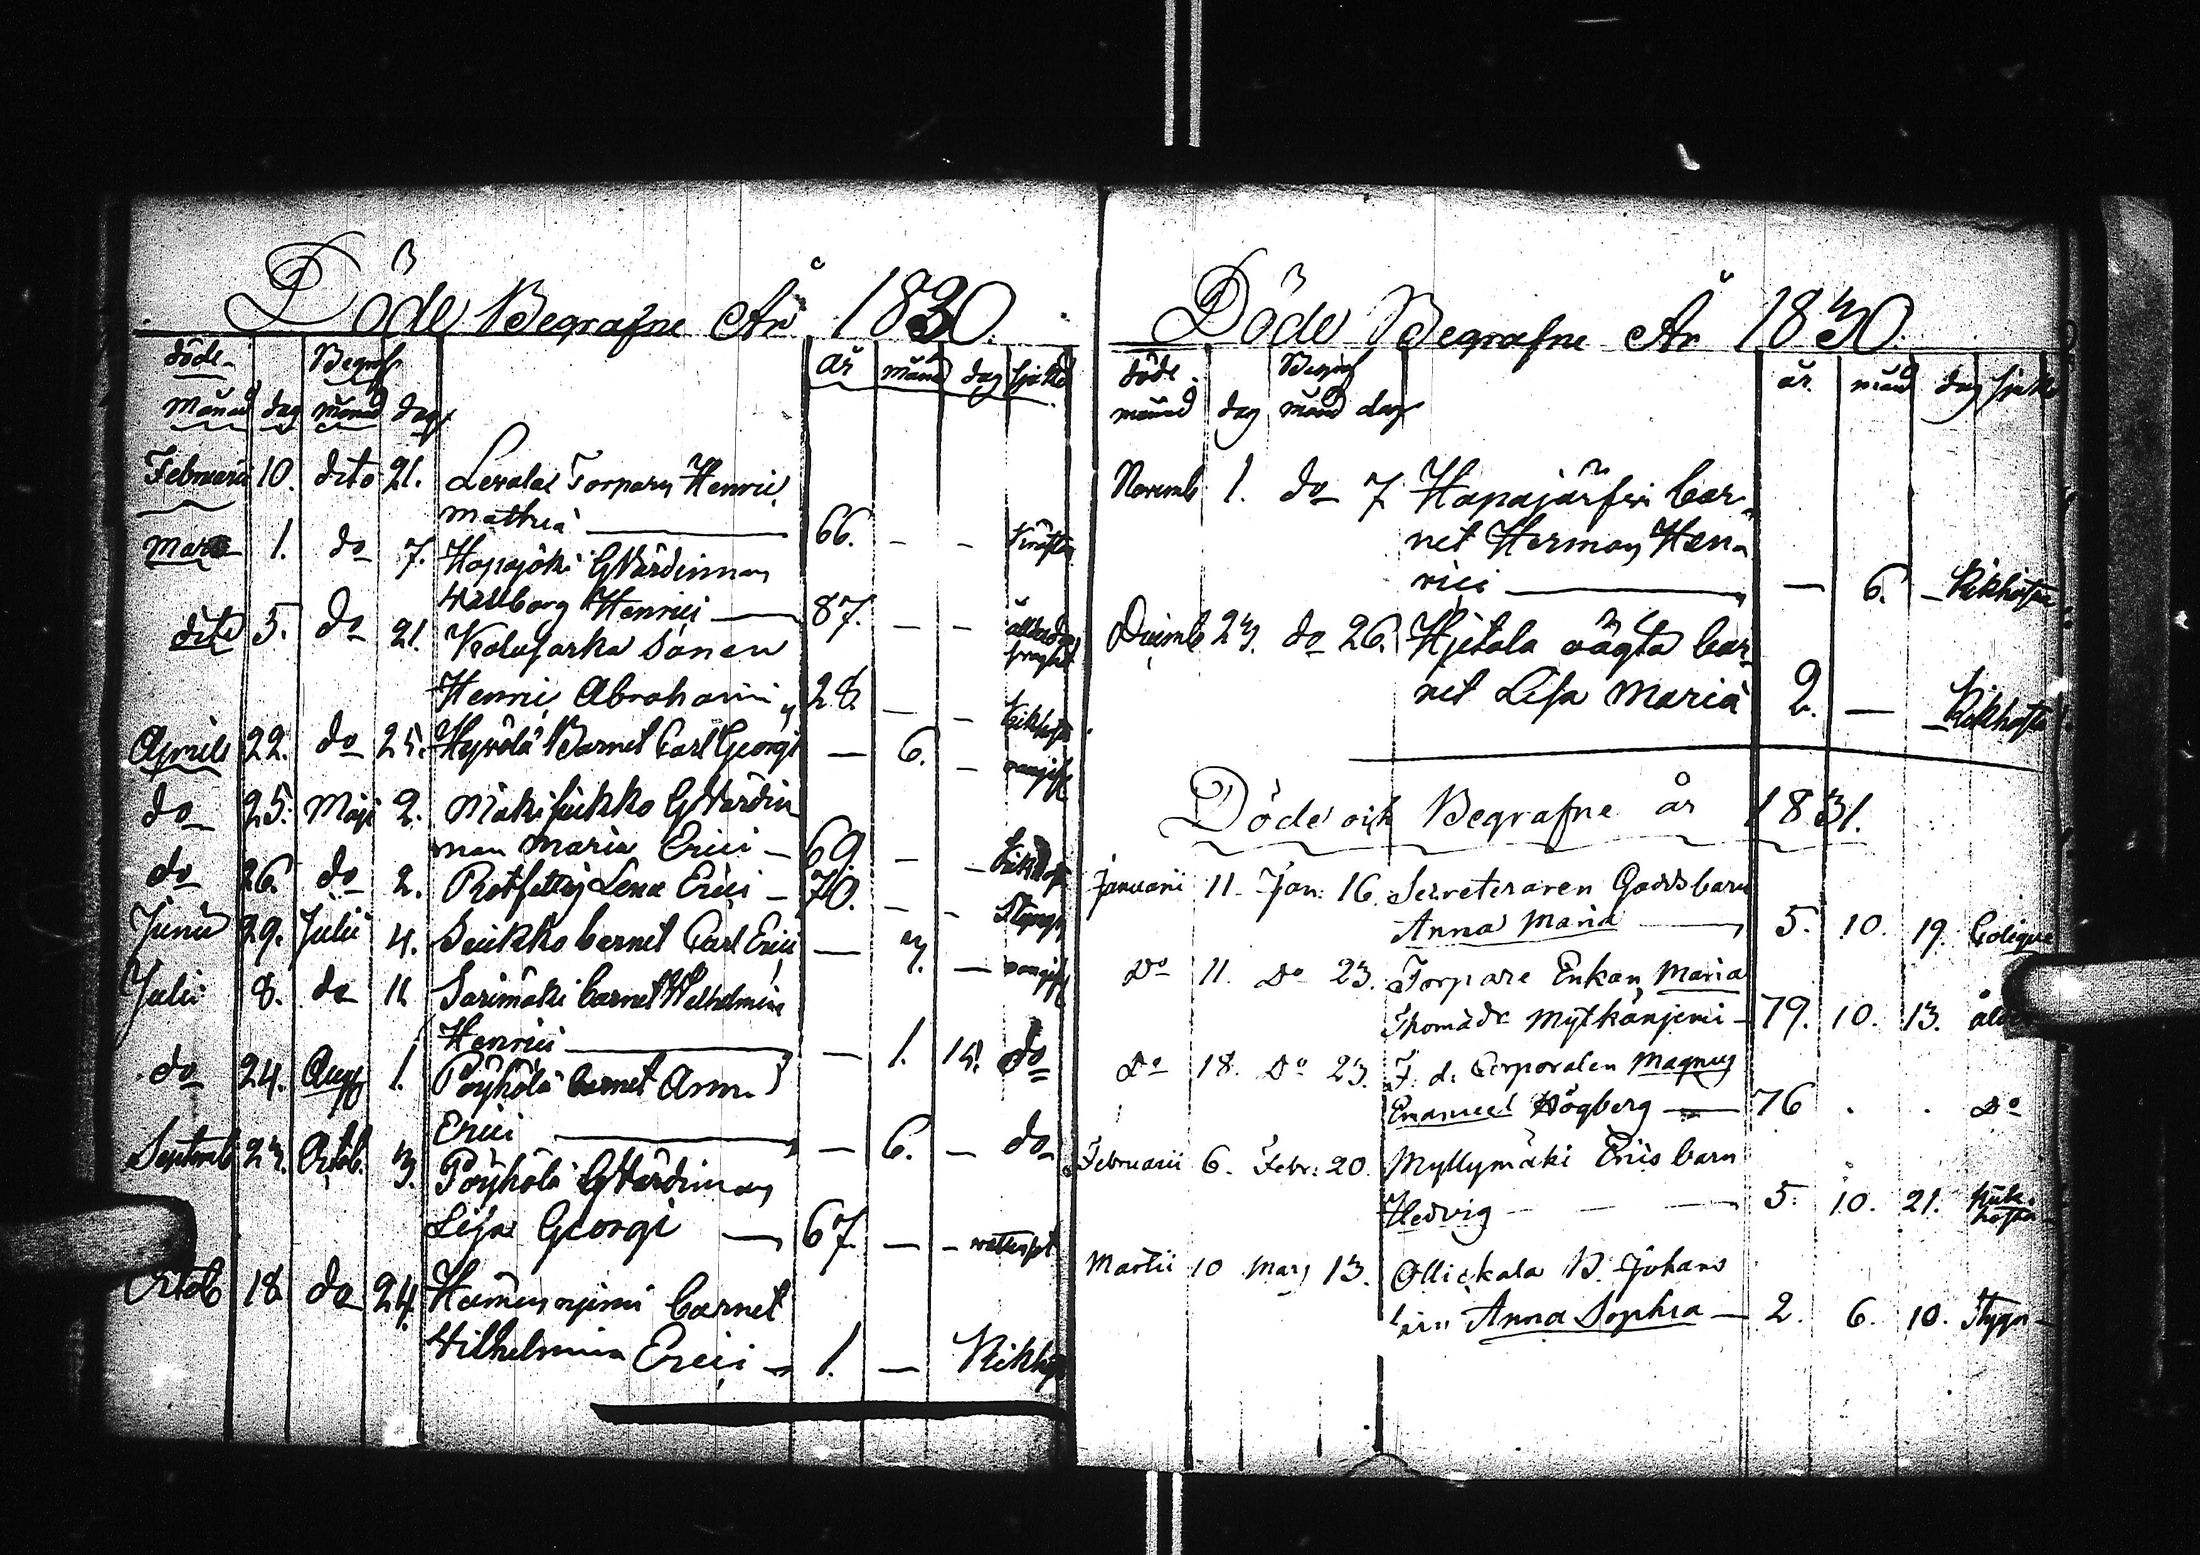 Döde Begrafne År 1830.
döde Begraf
Månad dag månad dag år månad dag sjukd
Februarii 10. dito 21. Levalax Torparn Henric
Mattsiä 66. - -
Mars 1. do 7. Hapajöki GWärdinnan
Wallborg Henrici 87. - -
dito 5. do 21. sonen
Henric Abrahami 28. - -
Aprils 22. do 25. Hyrölä Barnet Carl Georgi — 6. -
do 25. Maji 2. Mäki GWärdin
nan Maria Erici - 69. - -
do 26. do 2. Lena Erici - 70. - -
Junii 29. Julii 4. Seikko barnet Carl Erici —
Julii 8. do 11. Sarimäki barnet Wilhelmina
Henrici — 1. 15. do
do 24. Aug 1. Pöyhölä barnet Anna
Erici — 6. - do
Septemb 23. Octob. 3. Pöyhölä GWärdinnan
Lisa Georgi 67. - -
Octob 18 do 24. barnet
Wilhelmina Erici 1. —
Döde Begrafne År 1830.
döde
månad dag månad dag år månad dag sjukd
Novemb 1. do 7 Hapajärfvi bar
net Herman Hen
rici — 6. -
Decemb 23. do 26. Hjetala oägta bar
net Lisa Maria 2. —
Döde och Begrafne år 1831.
Januarii 11. Jan. 16. Secreteraren Gadds barn
Anna Maria 5. 10. 19.
Do 11. Do 23. Torpare Enkan Maria
Thomädr 79. 10. 13.
Do 18. Do 23. F. d. Corporalen Magnus
Emanuel Högberg 76 . . Do
Februarii 6. Febr. 20. Myllymäki Erics barn
Hedvig 5. 10. 21. Kik-
hosta
Martii 10 Mars 13. Ollickala B. Johans
Anna Sophia 2. 6. 10.